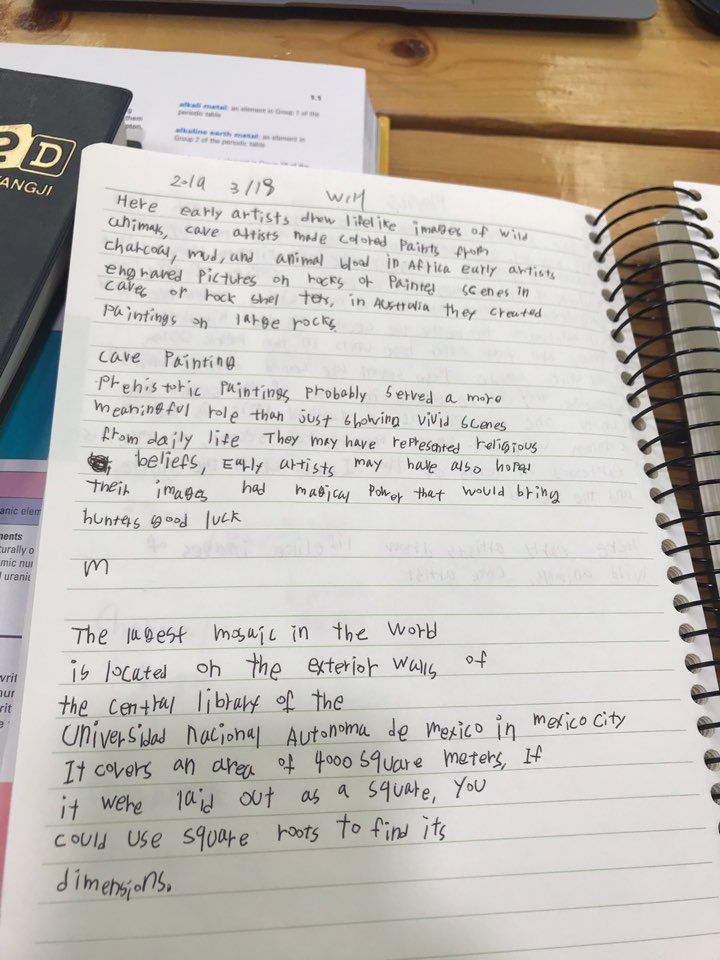 1.1
alkali metal: an element in Group 1 of the
periodic table
alkaline earth metal: an element in
Group 2 of the periodic table
them
D
ANGJI
2019 3/18
Here early artists drew lifelike images of wild
animals, cave artists made colored paints from
charcoal, mud, and animal blood in Africa early artists
engraved pictures on rocks or painted scenes in
caves or rock shel ters, in Australia they created
paintings on large rocks
cave Painting
Prehistoric paintings probably served a more
meaningful role than just showing vivid scenes
from daily life They may have represented religious
beliefs, Early artists may have also hoped
their images had magical power that would bring
hunters good luck
m
The lagest mosaic in the world
is located on the exterior walls of
the central library of the
Universidad nacional Autonoma de mexico in mexico City
It covers an area of 4000 square meters, If
it were laid out as a square, You
could use square roots to find its
dimensions.
anic elem
nents
turally o
mic nu
urani